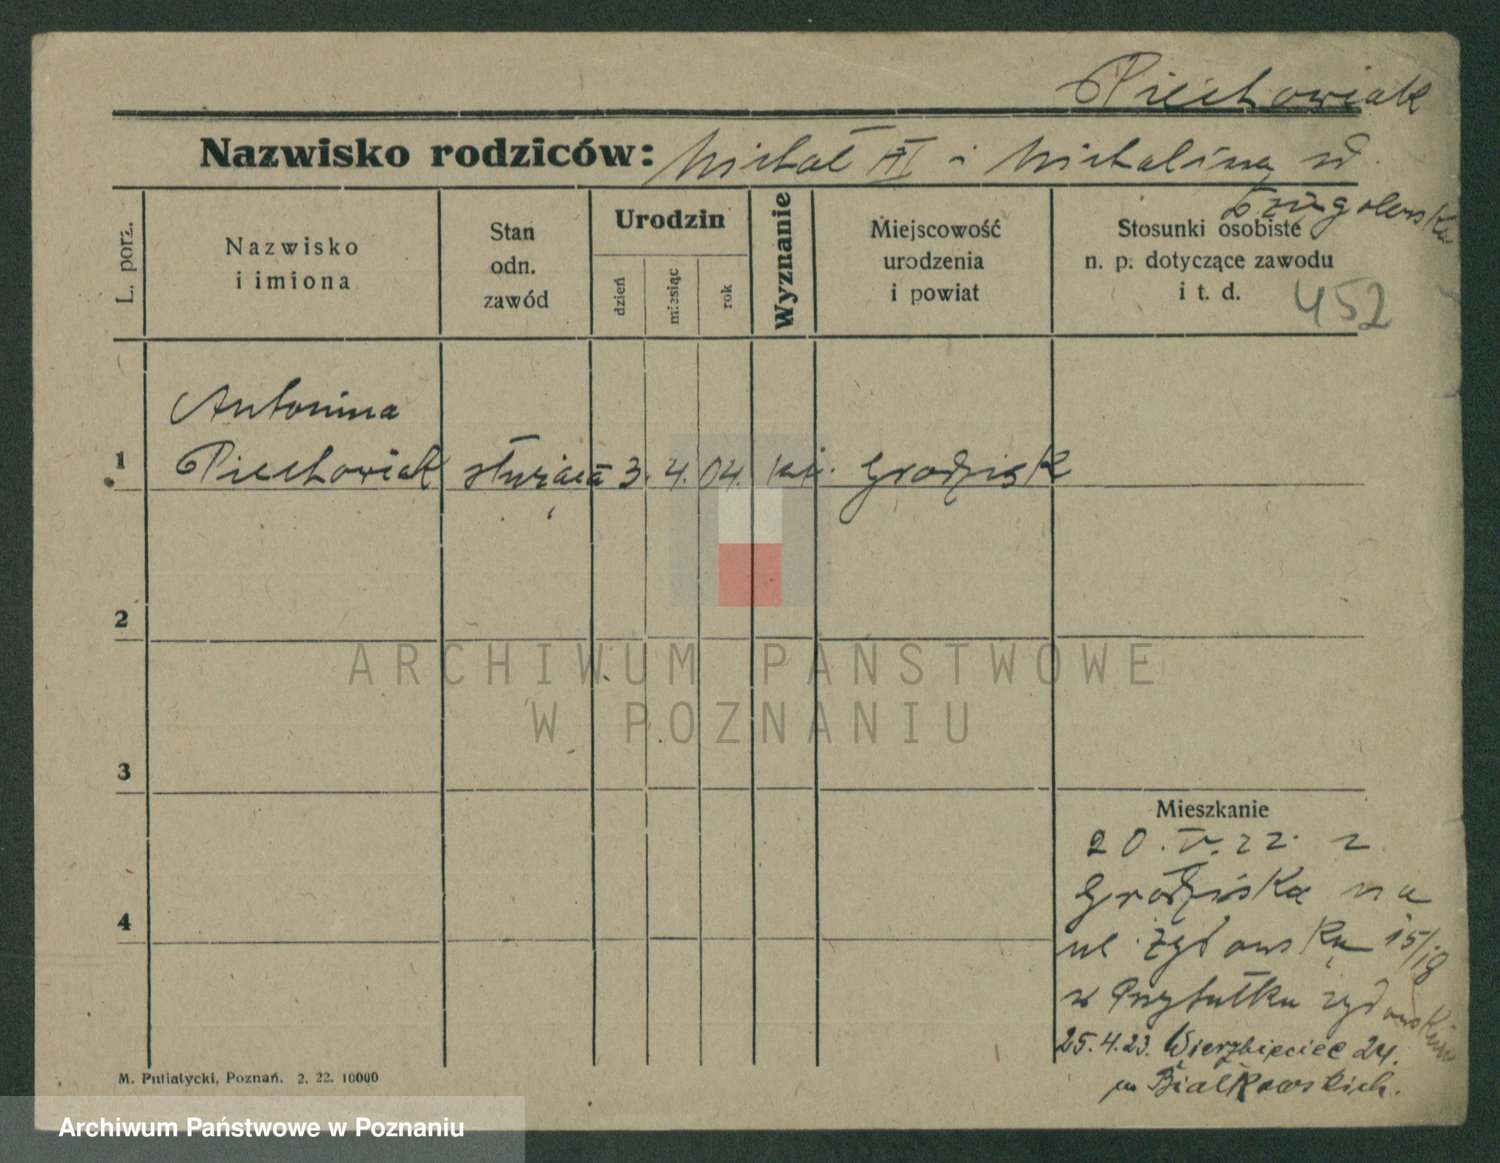 Piechowiak
Nazwisko rodziców: Michał i Michalina
L. porz.
Nazwisko
i imiona
Stan
odn.
zawód
Urodzin
dzień
miesiąc
rok
Wyznanie
Miejscowość
urodzenia
i powiat
Stosunki osobiste
n. p. dotyczące zawodu
i t. d.
452
Antonina
1 Piechowiak służąca 3. 4. 04. kat. Grodzisk
2
3
4
Mieszkanie
20. V. 22. z
Grodziska na
ul. Żydowską 15/18
w Przytułku żydowskim
25.4.23. Wierzbięcice 24.
p. Białkowskich.
M. Putiatycki, Poznań. 2. 22. 10000
ARCHIWUM PAŃSTWOWE
W POZNANIU
Archiwum Państwowe w Poznaniu